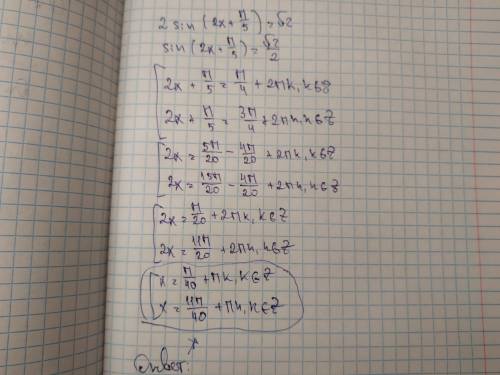 2 sin (2x + π/5) = √2
sin (2x + π/5) = √2/2
2x + π/5 = π/4 + 2πk, k∈Z
2x + π/5 = 3π/4 + 2πk, k∈Z
2x = 5π/20 - 4π/20 + 2πk, k∈Z
2x = 15π/20 - 4π/20 + 2πk, k∈Z
2x = π/20 + 2πk, k∈Z
2x = 11π/20 + 2πk, k∈Z
x = π/40 + πk, k∈Z
x = 11π/40 + πk, k∈Z
Ответ: